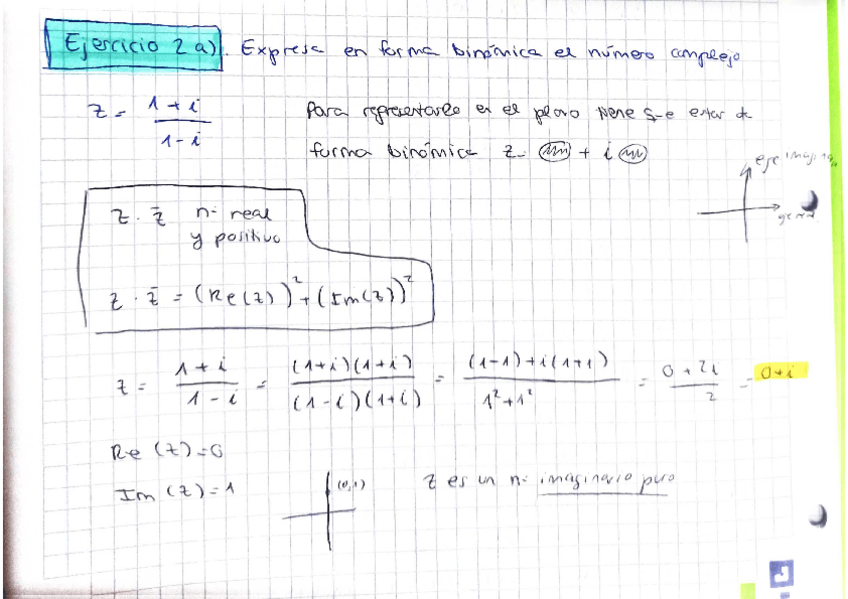 Ejercicio 2 a). Expresa en forma binómica el número complejo
z = \frac{1+i}{1-i}
Para representarlo en el plano tiene que estar de
forma binómica z = + i
eje imaginario
z · z̄ nº real
y positivo
z · z̄ = (Re(z))² + (Im(z))²
z = \frac{1+i}{1-i} = \frac{(1+i)(1+i)}{(1-i)(1+i)} = \frac{(1-1)+i(1+1)}{1²+1²} = \frac{0+2i}{2} = 0+i
Re (z) = 0
Im (z) = 1
(0,1)
z es un nº imaginario puro